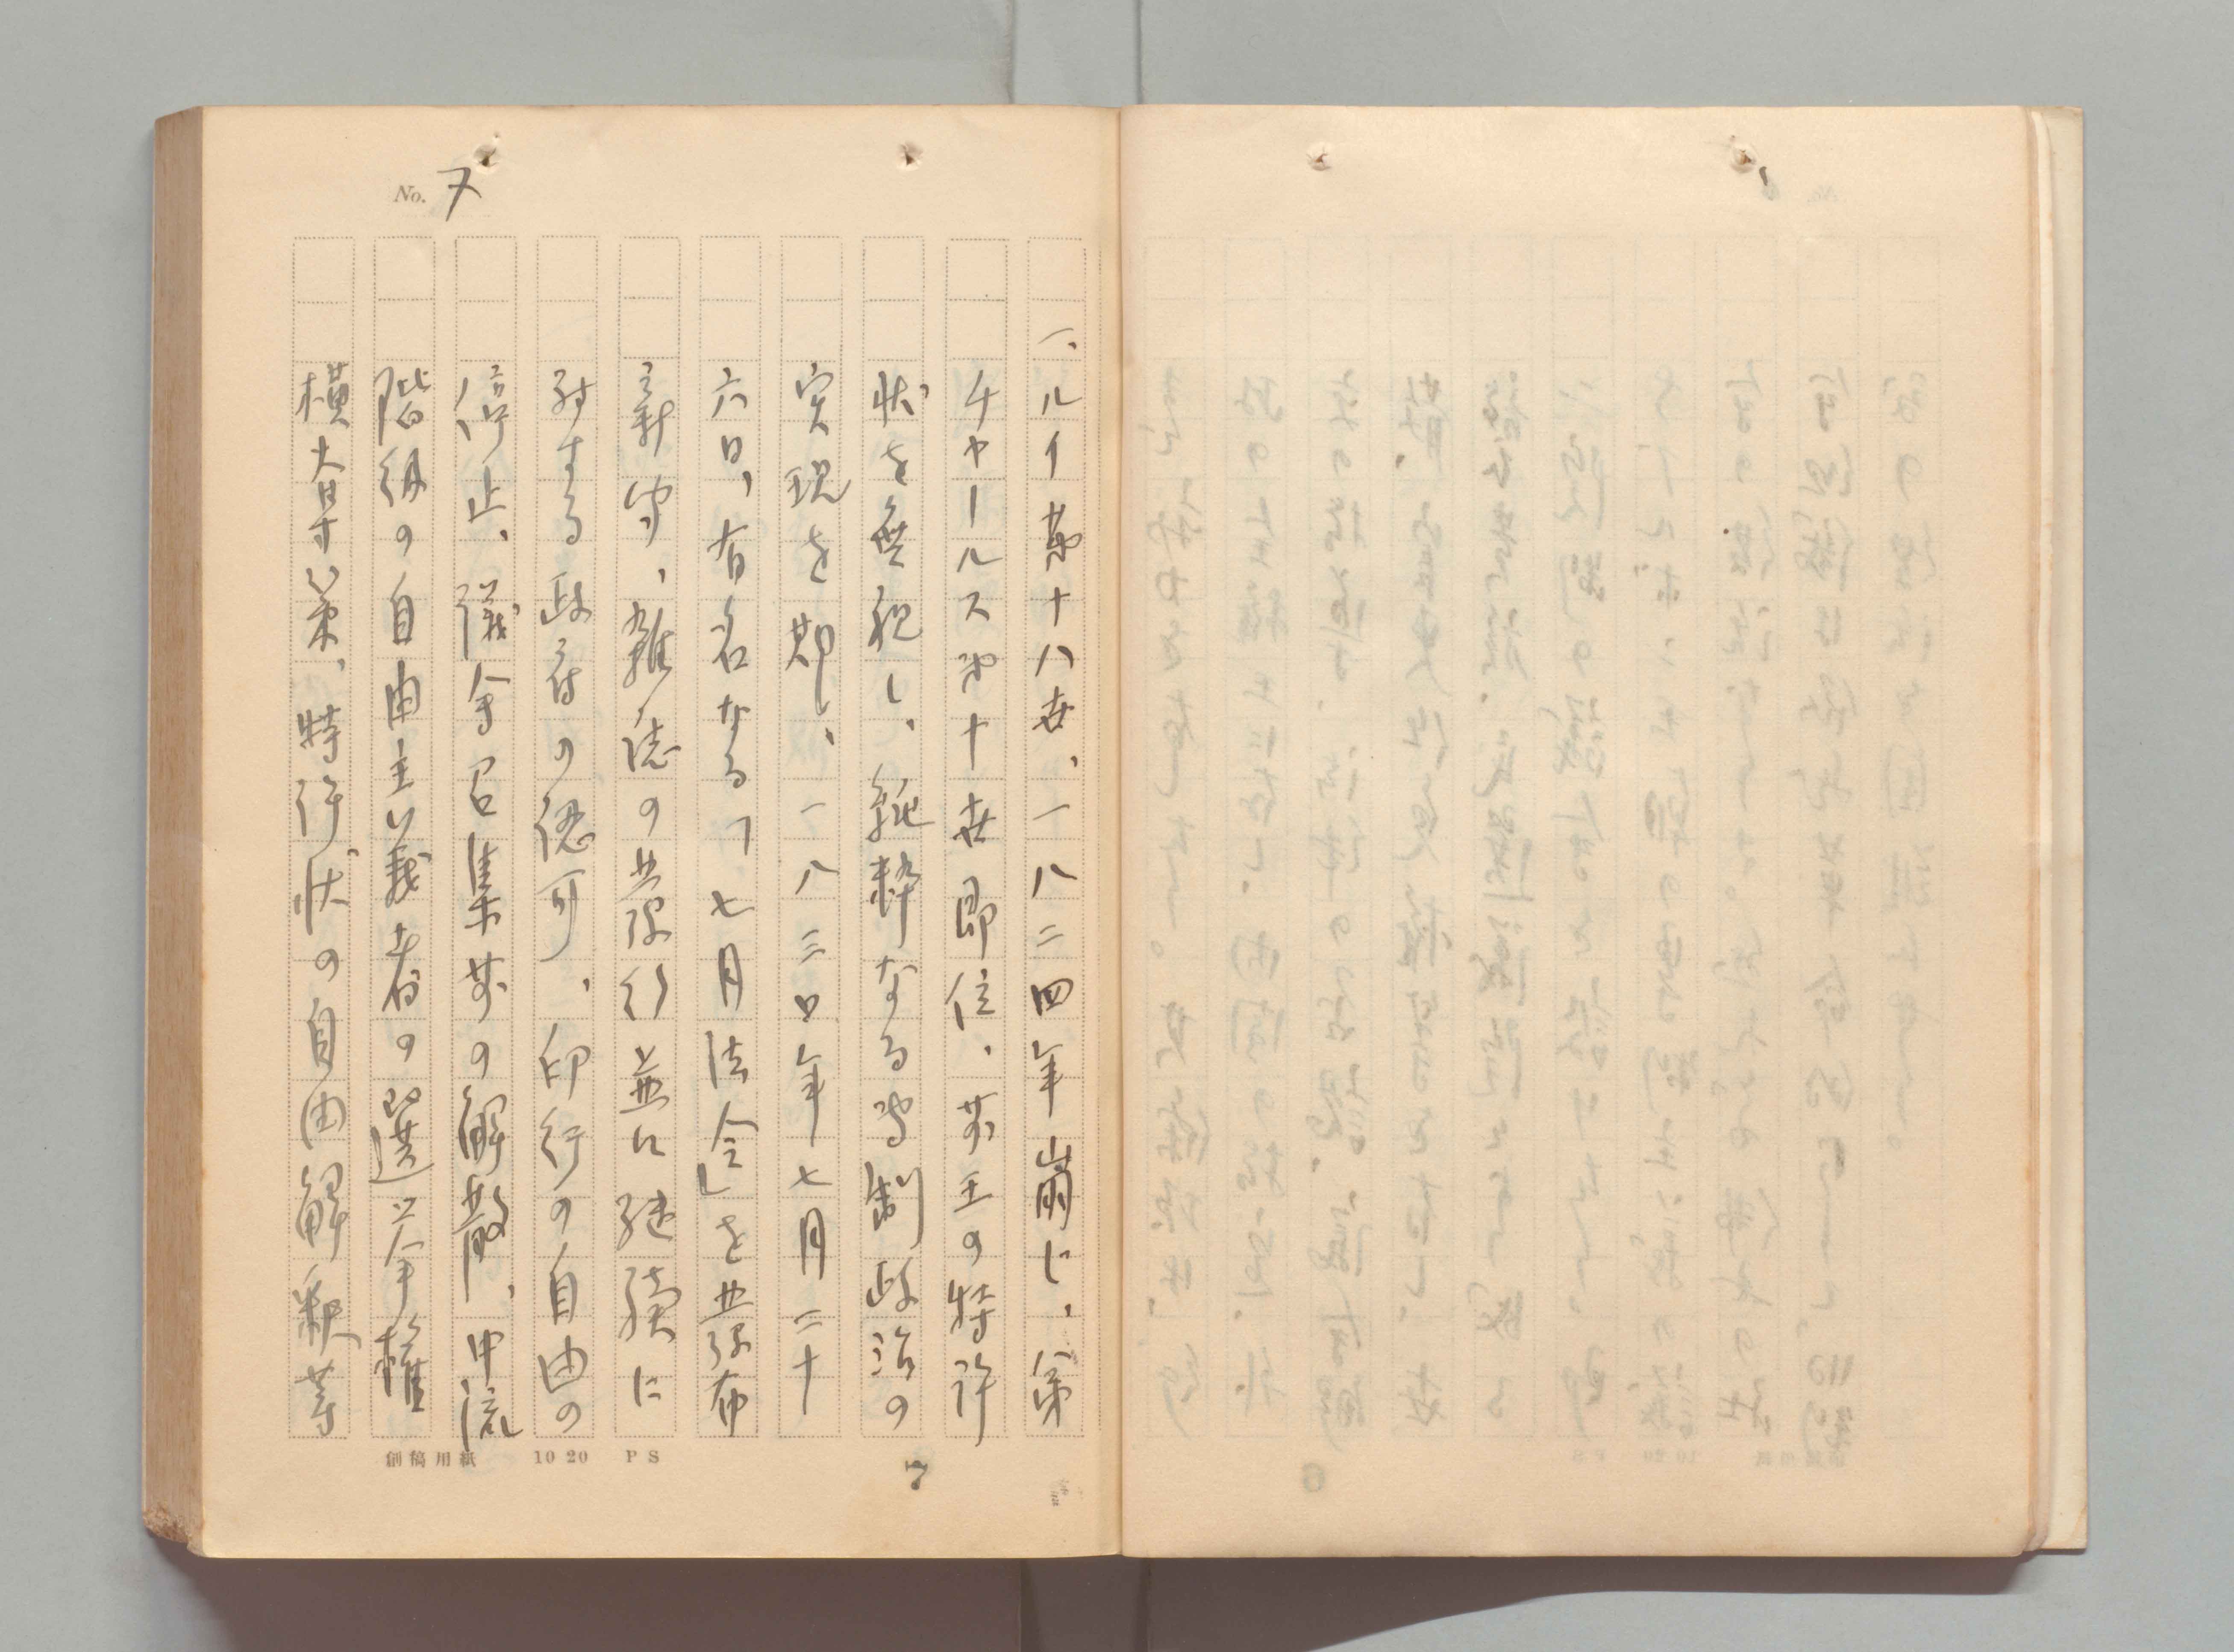 No. 7
一、ルイ第十八世、一八二四年崩じ、第
チャールス第十世即位、前王の特許
状を無視し、純粋なる専制政治の
実現を期し、一八三〇年七月二十
六日、有名なる「七月法令」を発布
新聞、雑誌の発行並に継続に
対する政府の認可、印行の自由の
停止、議会召集前の解散、中流
階級の自由主義者の選挙権
横奪策、特許状の自由解釈等
創稿用紙 10 20 PS
7